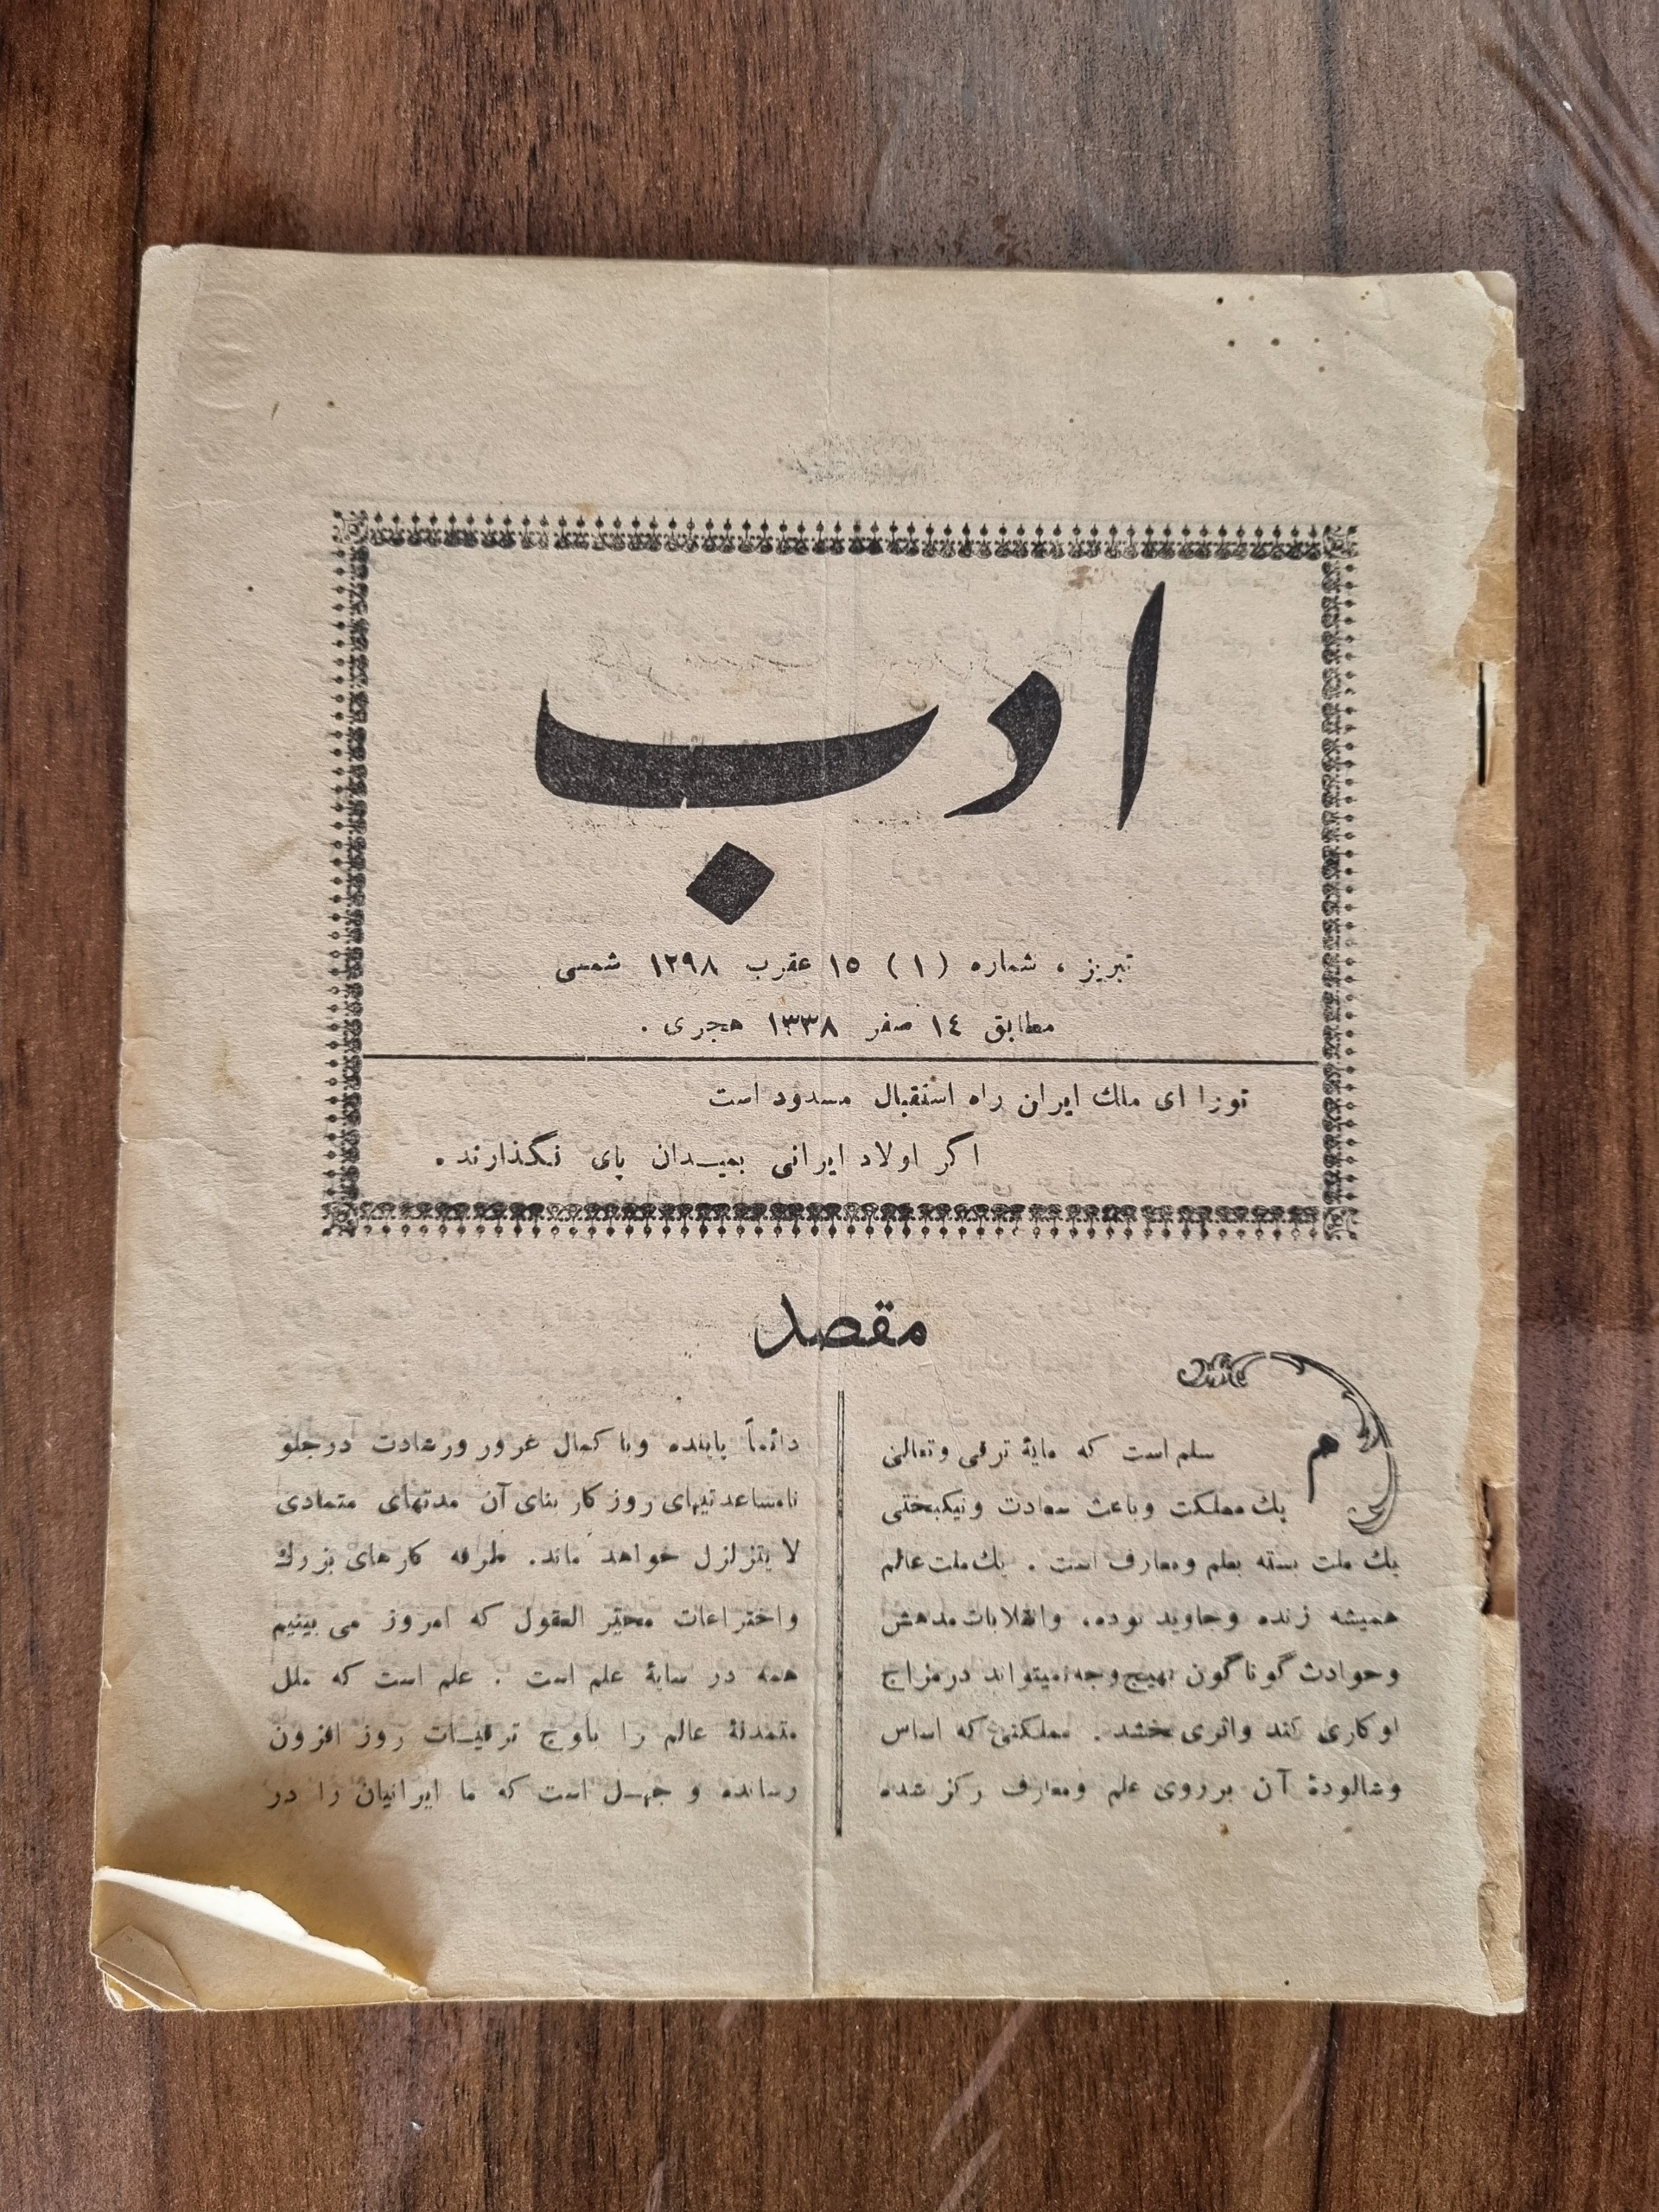 ادب
تبریز ، شماره (١) ١٥ عقرب ١٢٩٨ شمسی
مطابق ١٤ صفر ١٣٣٨ هجری .
تو را ای ملك ایران راه استقبال مسدود است
اگر اولاد ایرانی بمیـدان پای نگذارند .
مقصد
مسلم است که مایهٔ ترقی وتعالی
یك مملکت وباعث سعادت ونیکبختی
یك ملت بسته بعلم ومعارف است . یك ملت عالم
همیشه زنده وجاوید بوده، وانقلابات مدهش
وحوادث گوناگون بهیچوجه نمیتواند درمزاج
اوکاری کند واثری بخشد . مملکتی که اساس
وشالودهٔ آن برروی علم ومعارف رکز شده
دائماً پاینده وبا کمال غرور ورشادت درجلو
نامساعدتیهای روزکار بنای آن مدتهای متمادی
لایتزلزل خواهد ماند. طرفه کارهای بزرك
واختراعات محیّر العقول که امروز می بینیم
همه در سایهٔ علم است . علم است که ملل
متمدنهٔ عالم را باوج ترقیـات روز افزون
رسانده و جهـل است که ما ایرانیان را در